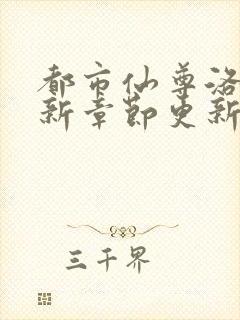 都市仙尊洛
新章节更新
三千界